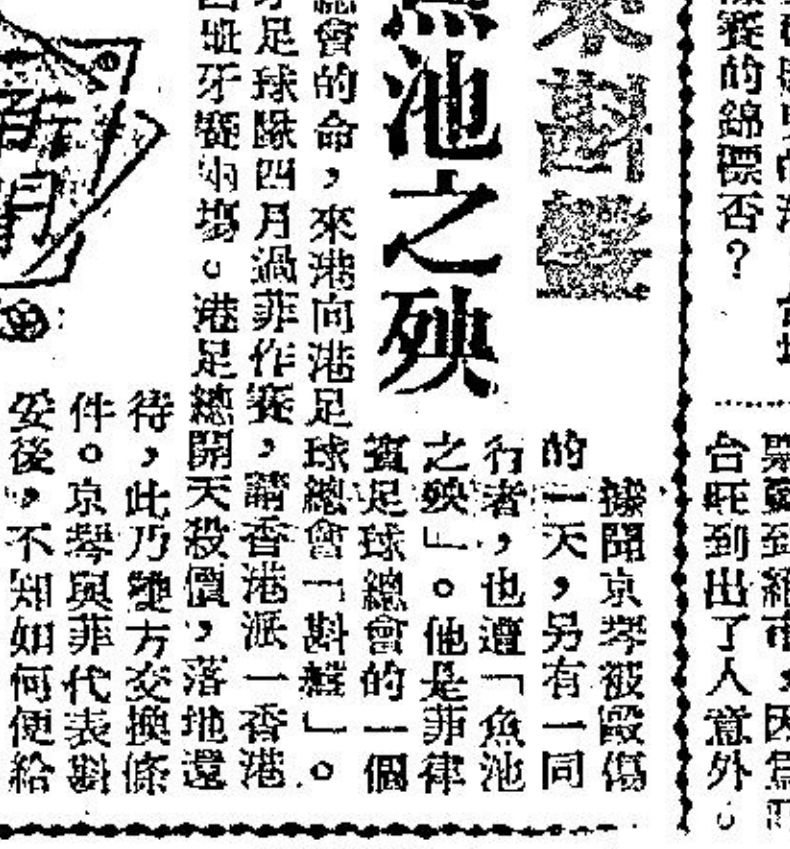 賽的錦標否？
台旺到出了人意外。
來斟盤
魚池之殃
據聞京琴被毆傷
的一天，另有一同
行者，也遭「魚池
之殃」。他是菲律
賓足球總會的一個
總會的命，來港向港足球總會「斟盤」。
牙足球隊四月過菲作賽，請香港派一香港
班牙賽兩塲。港足總開天殺價，落地還
待，此乃雙方交換條
件。京琴與菲代表斟
妥後，不知如何便給